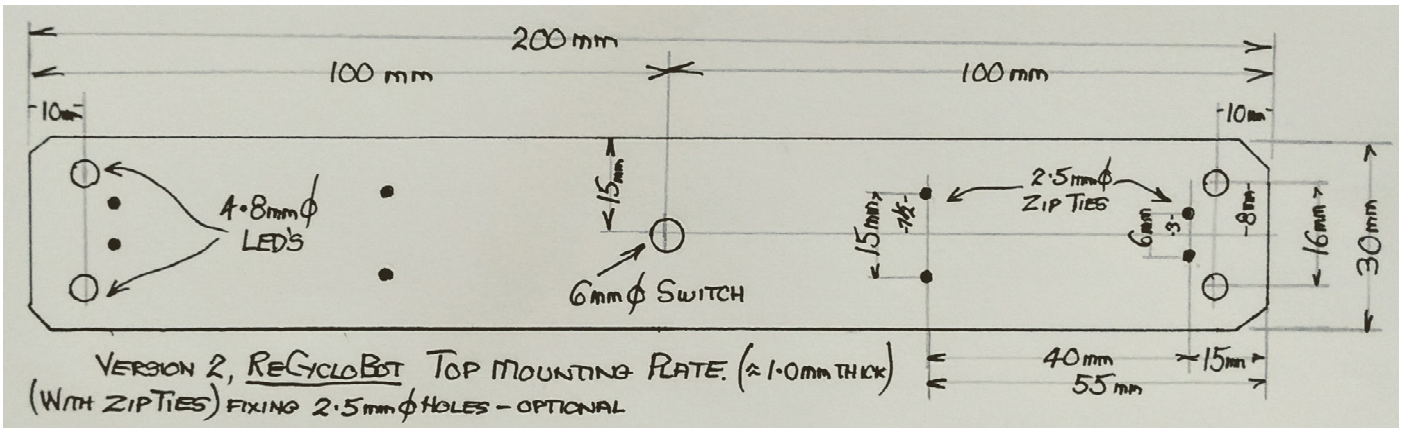 200mm
100 mm
100 mm
10mm
10mm
15mm
4.8mmϕ
LED'S
6mmϕ SWITCH
15mm
7½
2.5mmϕ
ZIP TIES
6mm
3
8mm
16mm
30mm
40mm
15mm
55mm
VERSION 2, ReCycloBot TOP MOUNTING PLATE. (≈1.0mm THICK)
(WITH ZIP TIES) FIXING 2.5mmϕ HOLES - OPTIONAL